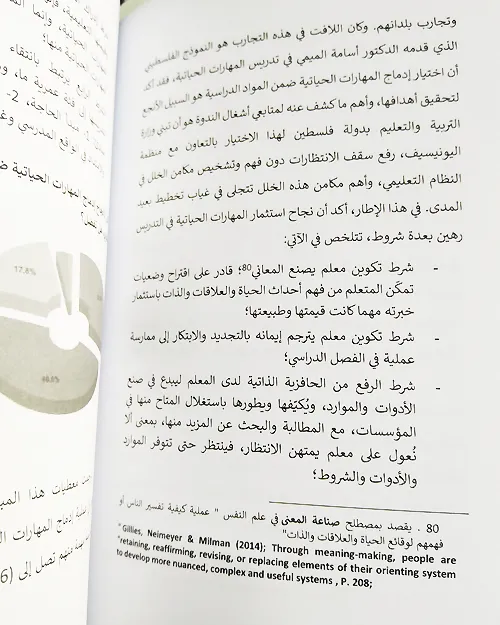 وتجارب بلدانهم. وكان اللافت في هذه التجارب هو النموذج الفلسطيني
الذي قدمه الدكتور أسامة الميمي في تدريس المهارات الحياتية، فقد أكد
أن اختيار إدماج المهارات الحياتية ضمن المواد الدراسية هو السبيل الأنجع
لتحقيق أهدافها، وأهم ما كشف عنه لمتابعي أشغال الندوة هو أن تبني وزارة
التربية والتعليم بدولة فلسطين لهذا الاختيار بالتعاون مع منظمة
اليونيسيف، رفع سقف الانتظارات دون فهم وتشخيص مكامن الخلل في
النظام التعليمي، وأهم مكامن هذه الخلل تتجلى في غياب تخطيط بعيد
المدى. في هذا الإطار، أكد أن نجاح استثمار المهارات الحياتية في التدريس
رهين بعدة شروط، تتلخص في الآتي:
- شرط تكوين معلم يصنع المعاني80؛ قادر على اقتراح وضعيات
تمكّن المتعلم من فهم أحداث الحياة والعلاقات والذات باستثمار
خبرته مهما كانت قيمتها وطبيعتها؛
- شرط تكوين معلم يترجم إيمانه بالتجديد والابتكار إلى ممارسة
عملية في الفصل الدراسي؛
- شرط الرفع من الحافزية الذاتية لدى المعلم ليبدع في صنع
الأدوات والموارد، ويُكيّفها ويطورها باستغلال المتاح منها في
المؤسسات، مع المطالبة والبحث عن المزيد منها، بمعنى ألا
نُعول على معلم يمتهن الانتظار، فينتظر حتى تتوفر الموارد
والأدوات والشروط؛
80 . يقصد بمصطلح صناعة المعنى في علم النفس " عملية كيفية تفسير الناس أو
فهمهم لوقائع الحياة والعلاقات والذات"
" Gillies, Neimeyer & Milman (2014); Through meaning-making, people are
"retaining, reaffirming, revising, or replacing elements of their orienting system
to develop more nuanced, complex and useful systems , P. 208;
17.8%